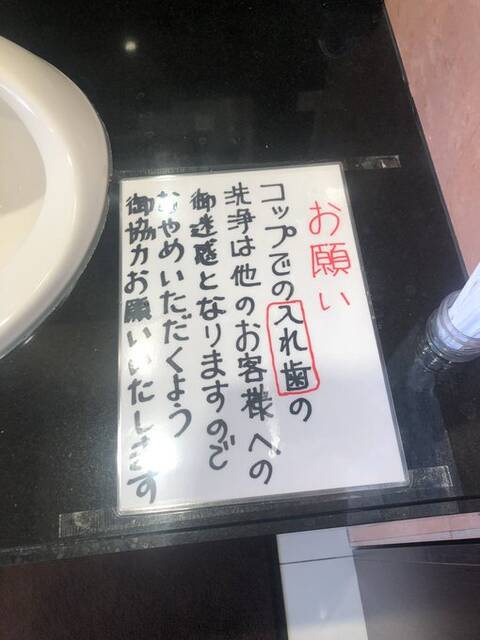 お願い
コップでの入れ歯の
洗浄は他のお客様への
御迷惑となりますので
おやめいただくよう
御協力お願いいたします